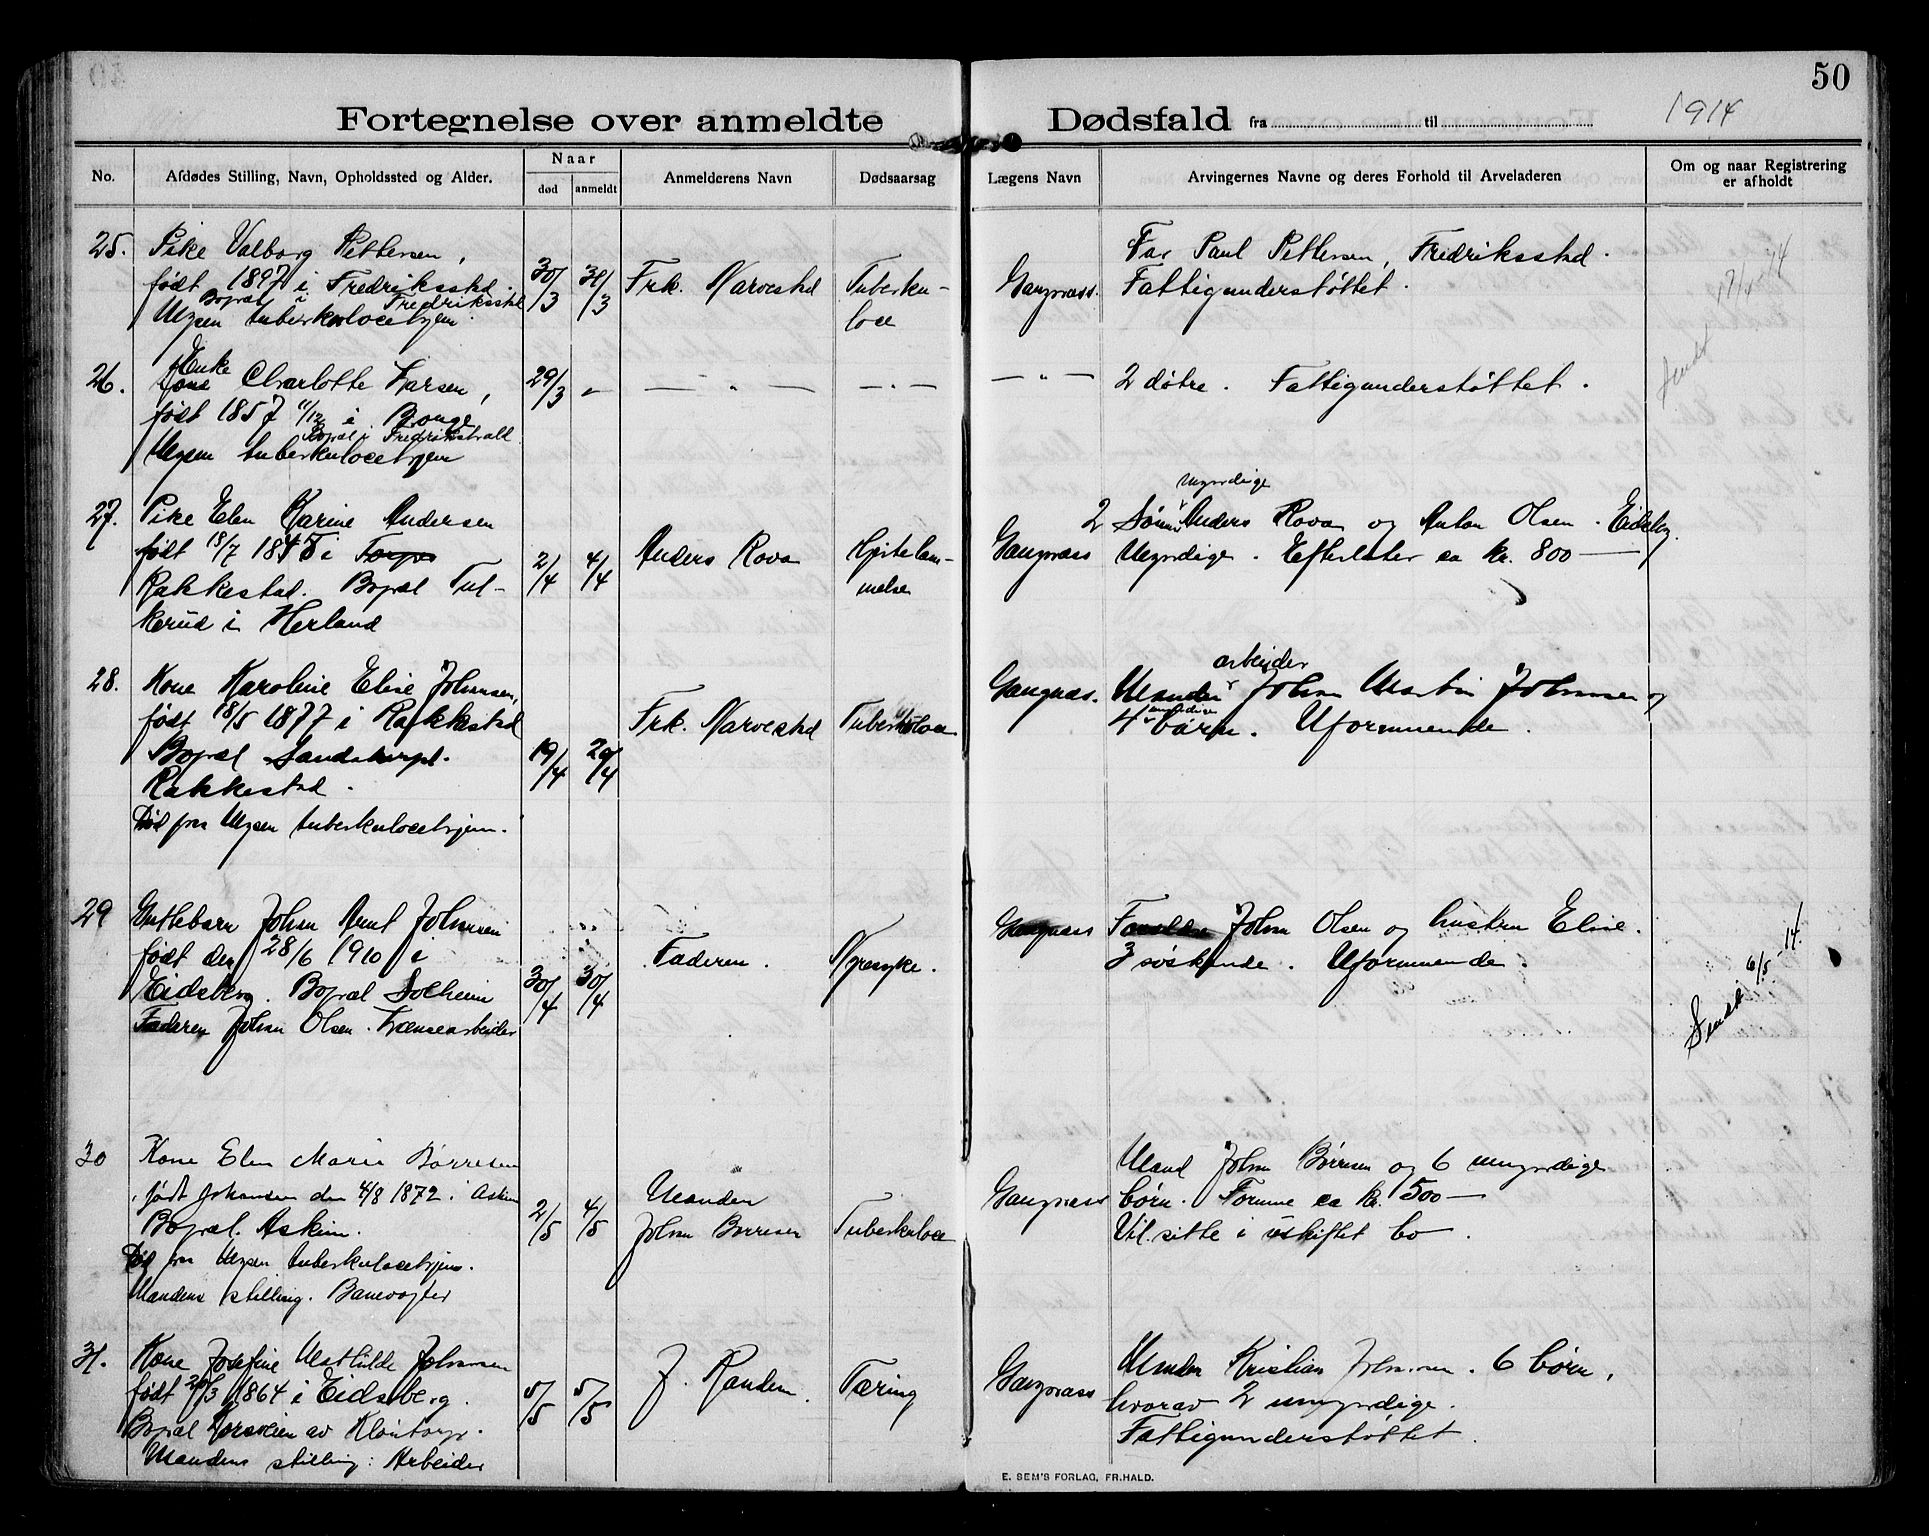 50
Fortegnelse over anmeldte Dødsfald fra til 1914
No.
Afdødes Stilling, Navn, Opholdssted og Alder.
Naar
død
anmeldt
Anmelderens Navn
Dødsaarsag
Lægens Navn
Arvingernes Navne og deres Forhold til Arveladeren
Om og naar Registrering
er afholdt
25.
Pike Valborg Pettersen,
født 1897 i Fredriksstad.
Bopæl i Fredriksstad
tuberkulocehjem.
30/3
31/3
Frk. Narvestad
Tuberku-
loce
Gangnæss.
Far Paul Pettersen, Fredriksstad.
Fattigunderstøttet.
Sendt 17/4 14
26.
Enke
Kone Charlotte Larsen,
født 1857 11/12 i Borge
Bopæl i Fredrikshald
tuberkulocehjem
29/3
-
— " —
— " —
— " —
2 døtre. Fattigunderstøttet.
27.
Pike Elen Karine Andersen
født 18/7 1845 i Torpe
Rakkestad. Bopæl Tul-
kerud i Herland
2/4
4/4
Anders Rova
Hjertelam-
melse
Gangnæss
myndige
2 Sønner Anders Rova og Anton Olsen. Eidsberg.
Myndige. Efterlater ca kr. 800—
28.
Kone Karoline Elise Johansen,
født 18/5 1877 i Rakkestad
Bopæl
Rakkestad.
Død paa tuberkulocehjem.
19/4
20/4
Frk. Narvestad
Tuberkuloce
Gangnæs.
arbeider
Manden Johan Martin Johansen og
4 børn. Uformuende.
29
Guttebarn Johan Arnt Johansen
født den 28/6 1910 i
Eidsberg. Bopæl Solheim
Faderen Johan Olsen. Lænsearbeider
30/4
30/4
Faderen.
Nyresyke.
Gangnæss
Johan Olsen og hustru Elise.
3 søskende. Uformuende.
Sendt 6/5 - 14.
30
Kone Elen Marie Børresen
født Johansen den 4/8 1872 i Askim
Bopæl. Askim.
Død paa tuberkulocehjem.
Mandens stilling. Banevogter
2/5
4/5
Manden
Johan Børresen
Tuberkuloce
Gangnæss
Mand Johan Børresen og 6 umyndige
børn. Formue ca kr. 500—
Vil sitte i uskiftet bo.
31.
Kone Josefine Mathilde Johansen
født 20/3 1864 i Eidsberg.
Bopæl Korsveien av Kløntorp.
Mandens stilling: Arbeider
5/5
5/5
J. Randem.
Tæring
Gangnæss
Manden Kristian Johansen. 6 børn,
hvorav 2 umyndige.
Fattigunderstøttet.
E. SEM'S FORLAG, FR.HALD.